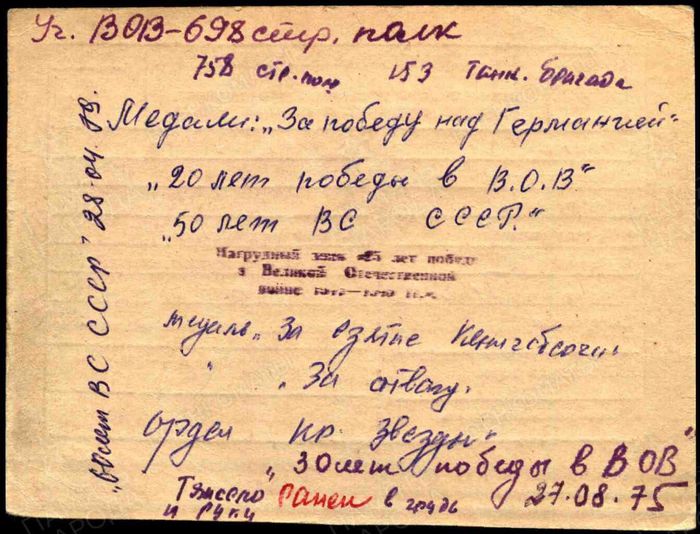 Уч. ВОВ-698 стр. полк
758 стр. полк 153 танк. бригада
Медали: „За победу над Германией"
„20 лет победы в В.О.В"
„50 лет ВС СССР."
Нагрудный знак «25 лет победы
в Великой Отечественной
войне
медаль „За взятие Кенигсберга
" „За отвагу"
Орден кр. Звезды"
„30 лет победы в ВОВ"
Тяжело ранен в грудь 27.08.75
и руки
лет ВС СССР" 28.04.79.